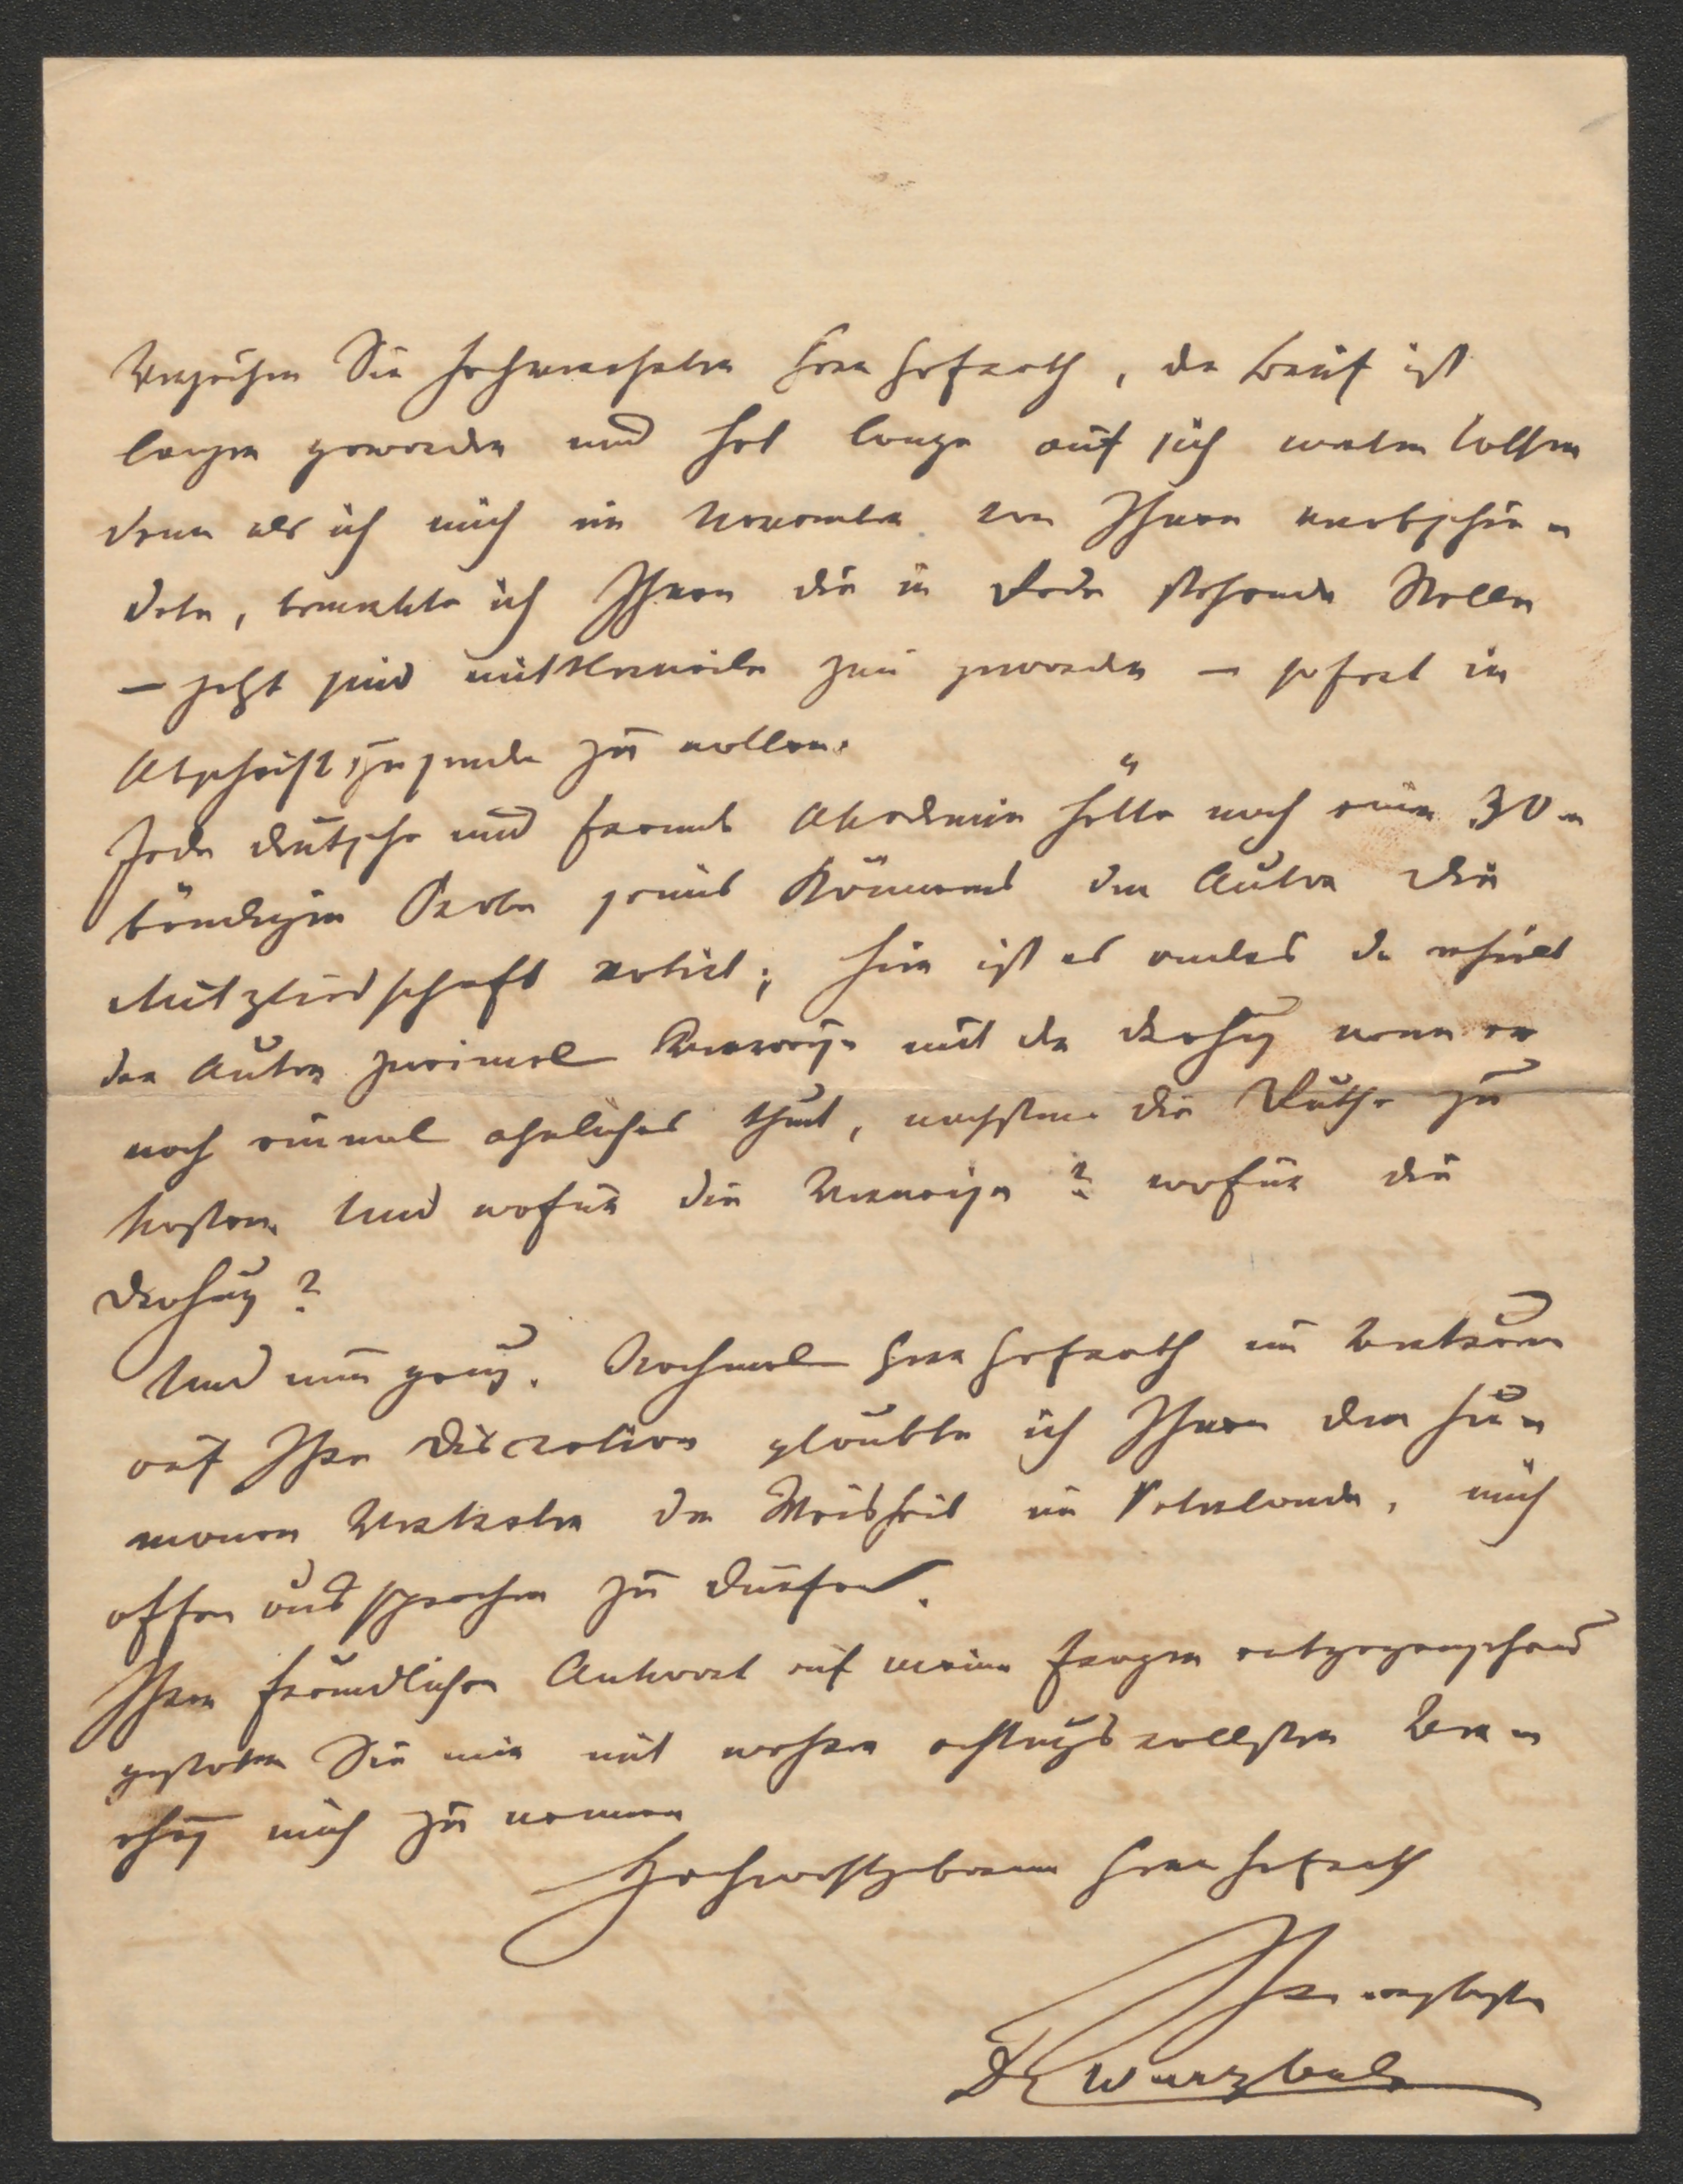 Verzeihen Sie hochverehrter Herr Hofrath, der Brief ist
lang geworden und hat lange auf sich warten lassen
denn als ich mich im November von Ihnen verabschie-
dete, bemerkte ich Ihnen die in Rede stehende Stelle
– jetzt sind mittlerweile zwei geworden – sofort in
Abschrift zusenden zu wollen.
Jede deutsche und fremde Akademie hätte nach einem 30-
bändigen Werke seines Könnens dem Autor die
Mitgliedschaft votirt; hier ist es anders da erhielt
der Autor zweimal Verweise mit der Drohung wenn er
noch einmal ähnliches thut, nächstens die Ruthe zu
kosten. Und wofür die Verweise? wofür die
Drohung?
Und nun genug. Nochmals Herr Hofrath im Vertrauen
auf Ihre Discretion glaubte ich Ihnen dem hu-
manen Vertreter der Weisheit im Vaterlande, mich
offen aussprechen zu dürfen.
Ihrer freundlichen Antwort auf meine Fragen entgegensehend
gestatten Sie mir mit wahrer achtungsvollster Vere-
hrung mich zu nennen
Hochwohlgeborner Herr Hofrath
Ihr ergebenster
Dr Wurzbach